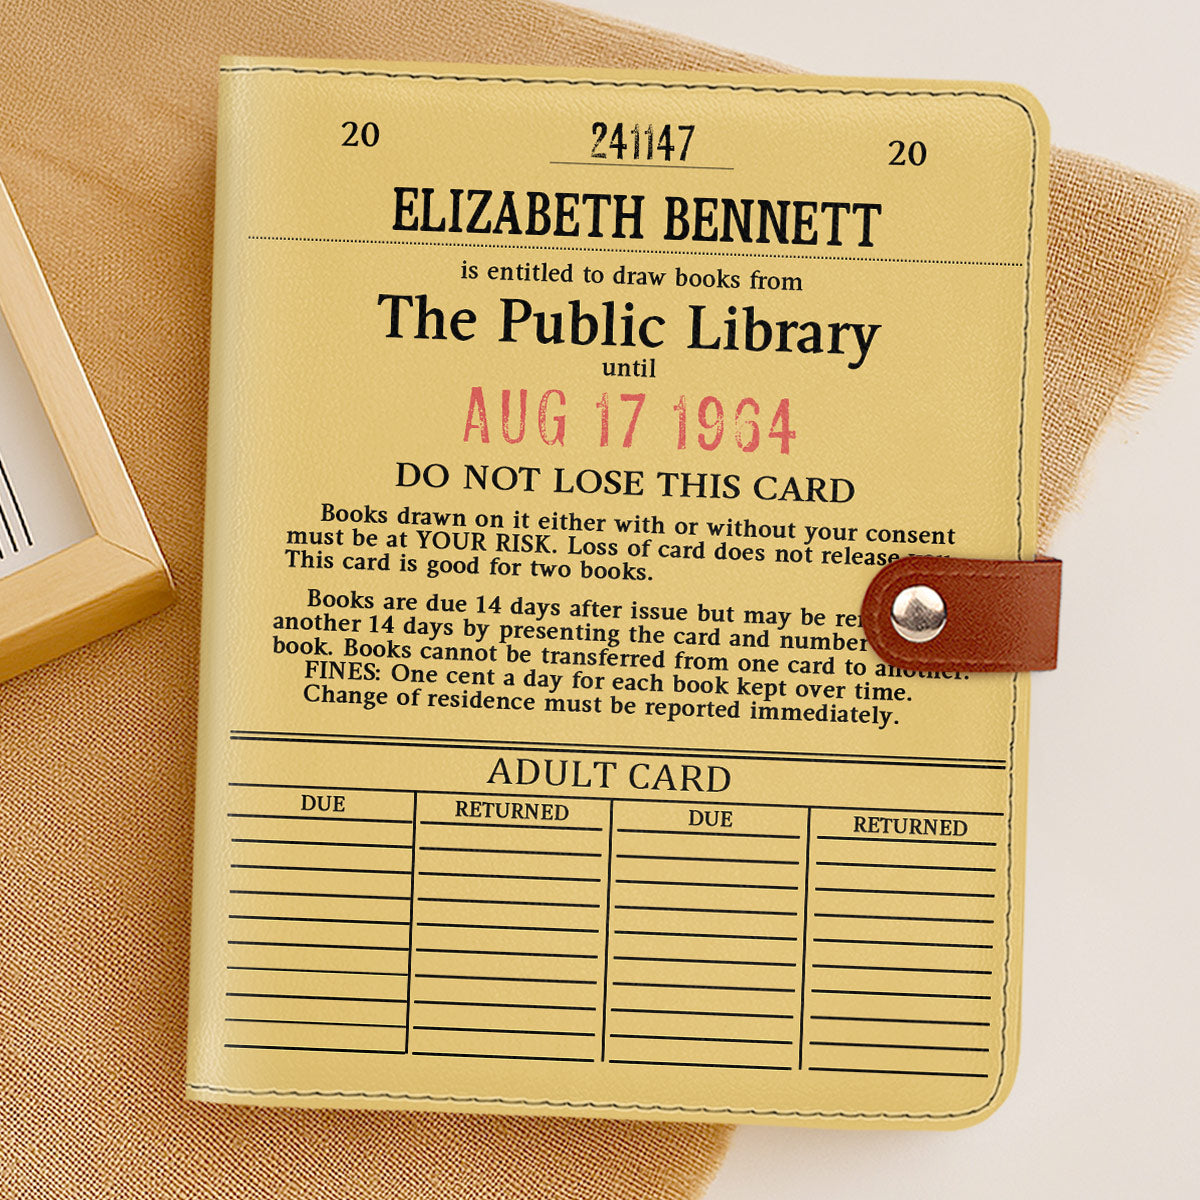 20 241147 20
ELIZABETH BENNETT
is entitled to draw books from
The Public Library
until
AUG 17 1964
DO NOT LOSE THIS CARD
Books drawn on it either with or without your consent
must be at YOUR RISK. Loss of card does not release
This card is good for two books.
Books are due 14 days after issue but may be
another 14 days by presenting the card and number
book. Books cannot be transferred from one card to another.
FINES: One cent a day for each book kept over time.
Change of residence must be reported immediately.
ADULT CARD
DUE RETURNED DUE RETURNED